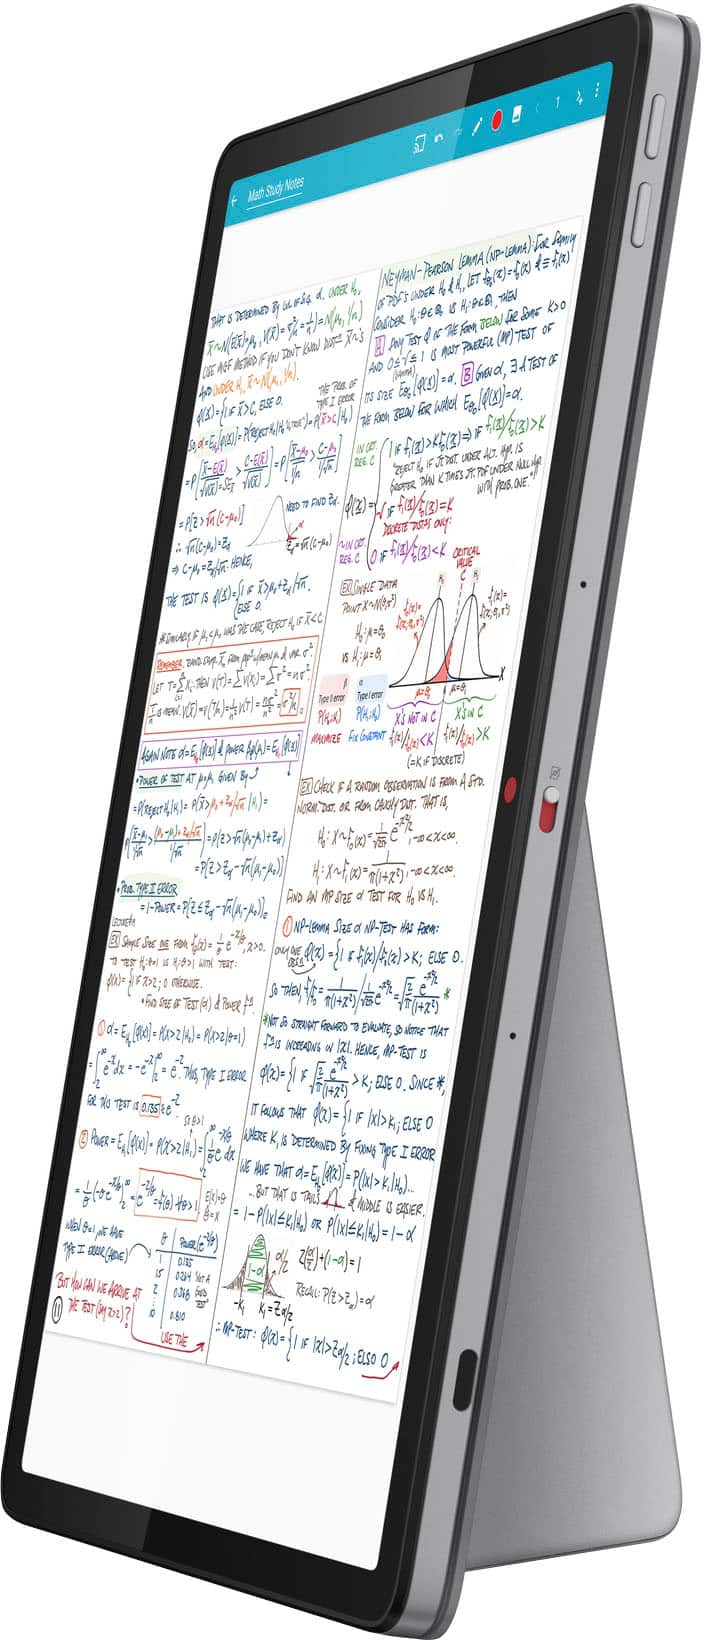 Math Study Notes
THAT IS DETERMINED BY LVL OF SIG. α. UNDER H₀,
X̄ ~ N(E(X̄)=μ₀, V(X̄)=σ²/n=1/n)=N(μ₀, 1/n)
(USE MGF METHOD IF YOU DON'T KNOW DIST. X̄~'S
AND UNDER H₁, X̄ ~ N(μ₁, 1/n).
φ(X)={1 IF X̄>C, ELSE 0.
THE PROB. OF
TYPE I ERROR
SO, α=E_H₀[φ(X)]=P(REJECT H₀|H₀ "TRUE")=P(X̄>C|H₀)
=P[X̄-E(X̄)/√V(X̄)=SE_X̄ > C-E(X̄)/√V(X̄)]=P[X̄-μ₀/1/√n > C-μ₀/1/√n]
=P[Z>√n(C-μ₀)]
NEED TO FIND Zα.
α
∴ √n(C-μ₀)=Zα
Zα=√n(C-μ₀)
⇒ C-μ₀=Zα/√n. HENCE,
THE TEST IS φ(X)={1 IF X̄>μ₀+Zα/√n.
ELSE 0.
*SIMILARLY IF μ₁<μ₀ WAS THE CASE, REJECT H₀ IF X̄<C.
REMEMBER: RAND. SAMP. Xₙ FROM POP W/MEAN μ & VAR. σ².
LET T=ΣXᵢ. THEN V(T)=ΣV(Xᵢ)=Σσ²=nσ².
T/n IS MEAN. V(X̄)=V(T/n)=1/n² V(T)=nσ²/n²=σ²/n.
AGAIN NOTE α=E_H₀[φ(X)] & POWER βφ(μ₁)=E_H₁[φ(X)]
•POWER OF TEST AT μ=μ₁ GIVEN BY
=P(REJECT H₀|H₁)=P(X̄>μ₀+Zα/√n |H₁)=
P(X̄-μ₁/1/√n > (μ₀-μ₁)+Zα/√n/1/√n)=P(Z>√n(μ₀-μ₁)+Zα)
=P[Z>Zα-√n(μ₁-μ₀)]
•PROB. TYPE II ERROR
=1-POWER=P[Z≤Zα-√n(μ₁-μ₀)]
LECTURE
EX SAMPLE SIZE ONE FROM f(x)=1/θ e^-x/θ, x>0.
TO TEST H₀:θ=1 VS H₁:θ>1 WITH TEST:
φ(X)={1 IF X>2; 0 OTHERWISE.
•FIND SIZE OF TEST(α) & POWER
① α=E_H₀[φ(X)]=P(X>2|H₀)=P(X>2|θ=1)
=∫₂^∞ e^-x dx=-e^-x|₂^∞=e^-2. THUS, TYPE I ERROR
FOR THIS TEST IS 0.135≈e^-2
SO θ>1
② POWER=E_H₁[φ(X)]=P(X>2|H₁)=∫₂^∞ 1/θ e^-x/θ dx
=1/θ(-θe^-x/θ)₂^∞=e^-2/θ=f(θ) ∀θ>1
WHEN θ=1, WE HAVE
TYPE I ERROR (ABOVE)
θ POWER(e^-2/θ)
1 0.135
1.5 0.264
2 0.368
10 0.810
NOT A
GOOD
TEST
BUT HOW CAN WE ARRIVE AT
THE TEST (SAY X>2)?
USE THE
NEYMAN-PEARSON LEMMA (NP-LEMMA): FOR FAMILY
OF PDF'S UNDER H₀ & H₁, LET f_θ₀(x)=f₀(x) & ≡ f₁(x)
CONSIDER H₀:θ∈Θ₀ VS H₁:θ∈Θ₁, THEN
A ANY TEST φ OF THE FORM BELOW FOR SOME K>0
AND 0≤γ≤1 IS MOST POWERFUL (MP) TEST OF
(GAMMA)
ITS SIZE E_θ₀[φ(X)]=α. B GIVEN α, ∃ A TEST OF
THE FORM BELOW FOR WHICH E_θ₀[φ(X)]=α.
IN CRT.
REG. C
1 IF f₁(x)>Kf₀(x) ⇒ IF f₁(x)/f₀(x)>K
"REJECT H₀ IF JT. DIST. UNDER ALT. HYP. IS
GREATER THAN K TIMES JT. PDF UNDER NULL HYP
WITH PROB. ONE."
φ(X)=
γ IF f₁(x)/f₀(x)=K
DISCRETE DISTNS ONLY:
~IN CRT.
REG. C
0 IF f₁(x)/f₀(x)<K
EX SINGLE DATA
POINT X~N(θ,σ²)
CRITICAL
VALUE
C
H₀
H₁
H₀:μ=θ₀
VS H₁:μ=θ₁
X
μ=θ₀
μ=θ₁
β
Type II error
α
Type I error
P(H₀|H₁)
P(H₁|H₀)
MAXIMIZE
FIX CONSTANT
X'S NOT IN C
X'S IN C
f₁(x)/f₀(x)<K
f₁(x)/f₀(x)>K
(=K IF DISCRETE)
EX CHECK IF A RANDOM OBSERVATION IS FROM A STD.
NORM. DIST. OR FROM CAUCHY DIST. THAT IS,
H₀: X~f₀(x)=1/√2π e^-x²/2, -∞<x<∞.
H₁: X~f₁(x)=1/π(1+x²), -∞<x<∞.
FIND AN MP SIZE α TEST FOR H₀ VS H₁.
① NP-LEMMA SIZE α NP-TEST HAS FORM:
ONLY ONE
OBS'N
φ(X)={1 IF f₁(x)/f₀(x)>K; ELSE 0.
SO THEN, f₁/f₀=1/π(1+x²)/1/√2π e^-x²/2=√2/π e^x²/2/(1+x²) *
*NOT SO STRAIGHT FORWARD TO EVALUATE, SO NOTICE THAT
IS INCREASING IN |X|. HENCE, MP-TEST IS
φ(X)={1 IF √2/π e^x²/2/(1+x²) > K; ELSE 0. SINCE *,
IT FOLLOWS THAT φ(X)={1 IF |X|>K₁; ELSE 0
WHERE K₁ IS DETERMINED BY FIXING TYPE I ERROR
WE HAVE THAT α=E_H₀[φ(X)]=P(|X|>K₁|H₀)...
...BUT THAT IS TAILS & MIDDLE IS EASIER.
=1-P(|X|≤K₁|H₀) OR P(|X|≤K₁|H₀)=1-α
1-α
α/2
Z(α/2)+(1-α)=1
RECALL: P(Z>Zα)=α
-K₁ K₁=Zα/2
∴ MP-TEST: φ(X)={1 IF |X|>Zα/2; ELSE 0